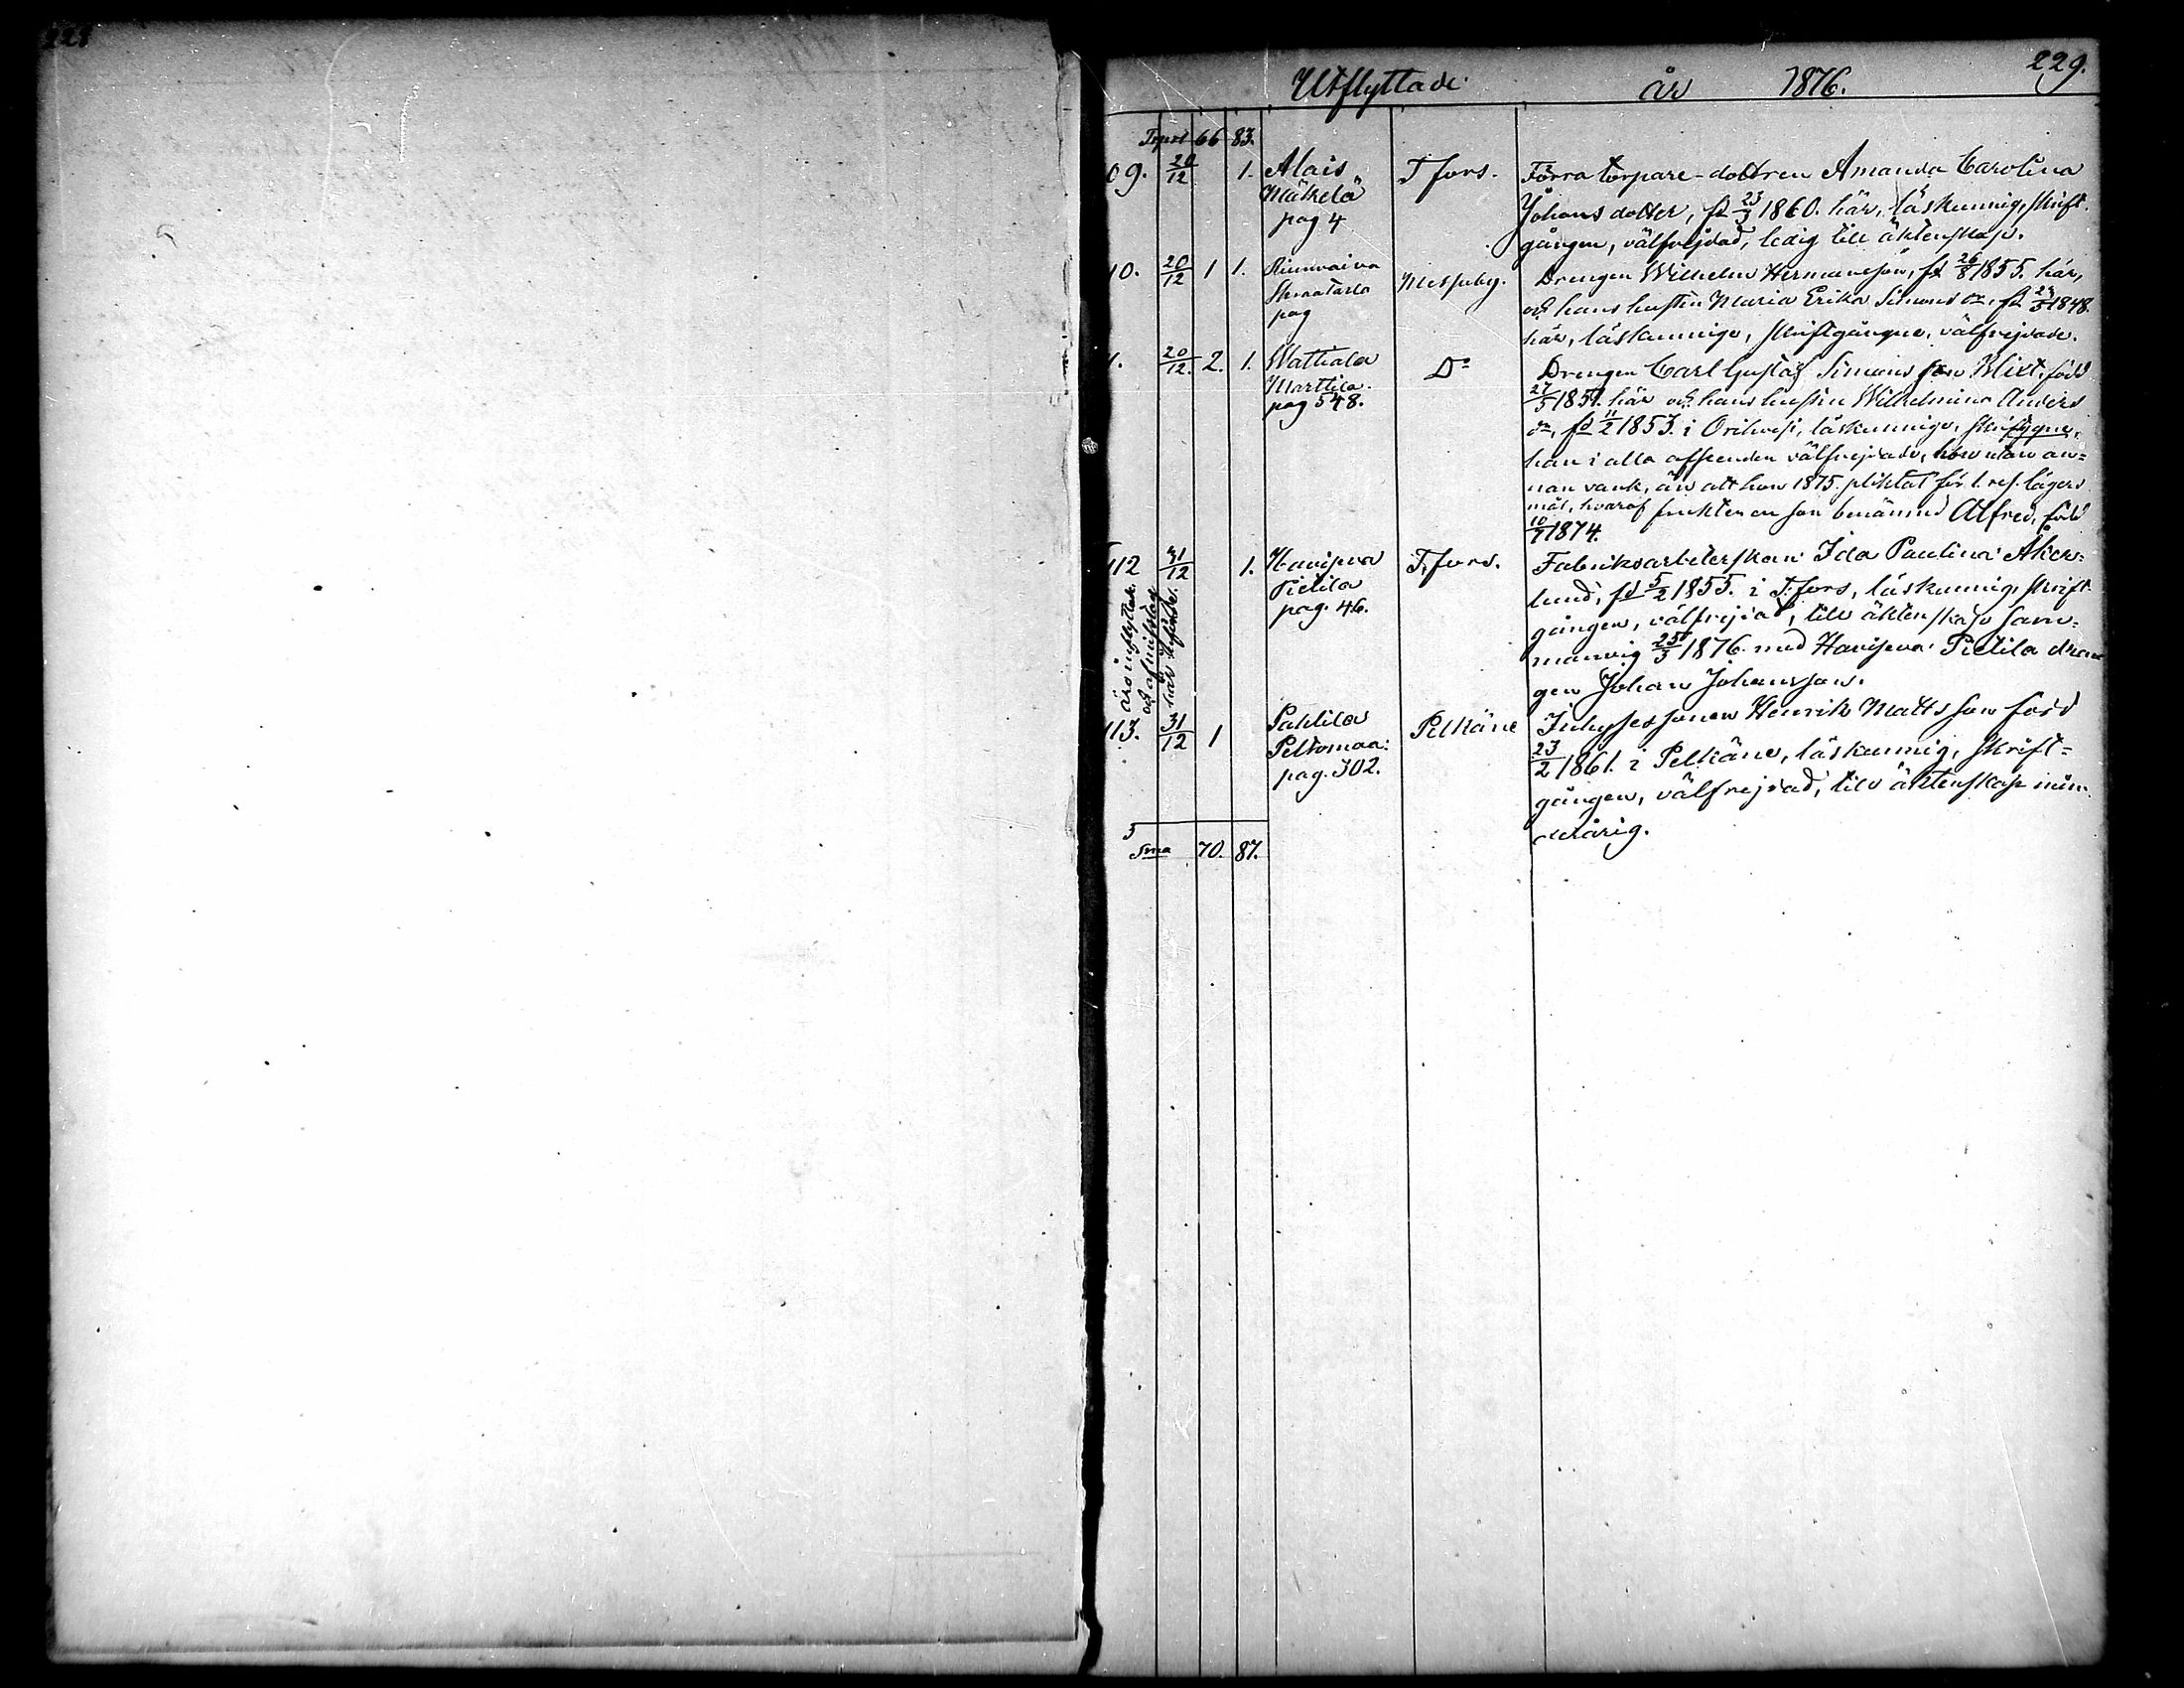 229.
Utflyttade år 1876.
Trprt 66 83.
09. 20/12 1. Alais Mäkelä pag 4 T fors. Förra torpare-dottren Amanda Carolina
Johansdotter, fd 23/3 1860. här, läskunnig, skrift-
gången, välfrejdad, ledig till äktenskap.
10. 20/12 1 1. pag Messuby. Drengen Wilhelm Hermansson, fd 26/8 1855. här,
och hans hustru Maria Erika Simonsdr, fd 1848.
här, läskunnige, skriftgångne, välfrejdade.
1. 20/12. 2. 1. Wattiala Marttila. pag 548. Do Drengen Carl Gustaf Simonsson Klixt, född
27/5 1851. här och hans hustru Wilhelmina Anders
dr, fd 11/2 1853. i Orihvesi, läskunnige, skriftggne,
han i alla afseenden välfrejdade, hon utan an=
nan vank, än att hon 1875. pliktat för 1. res. lägers
mål, hvaraf frukten en son benämnd Alfred, född
10/7 1874.
112 31/12 1. Haviseva Pietila pag. 46. T.fors. Fabriksarbeterskan Ida Paulina Åker=
lund, fd 5/2 1855. i T.fors, läskunnig, skrift-
gången, välfrejdad, till äktenskap sam=
manvig 25/3 1876. med Havisevai Pietila dren
gen Johan Johansson.
är inflyttad
här
113. 31/12 1 Pahtila Peltomaa. pag. 302. Pelkäne Inhysessonen Henrik Mattsson född
23/2 1861. i Pelkäne, läskunnig, skrift=
gången, välfrejdad, till äktenskap min-
derårig.
Sma 70. 87.